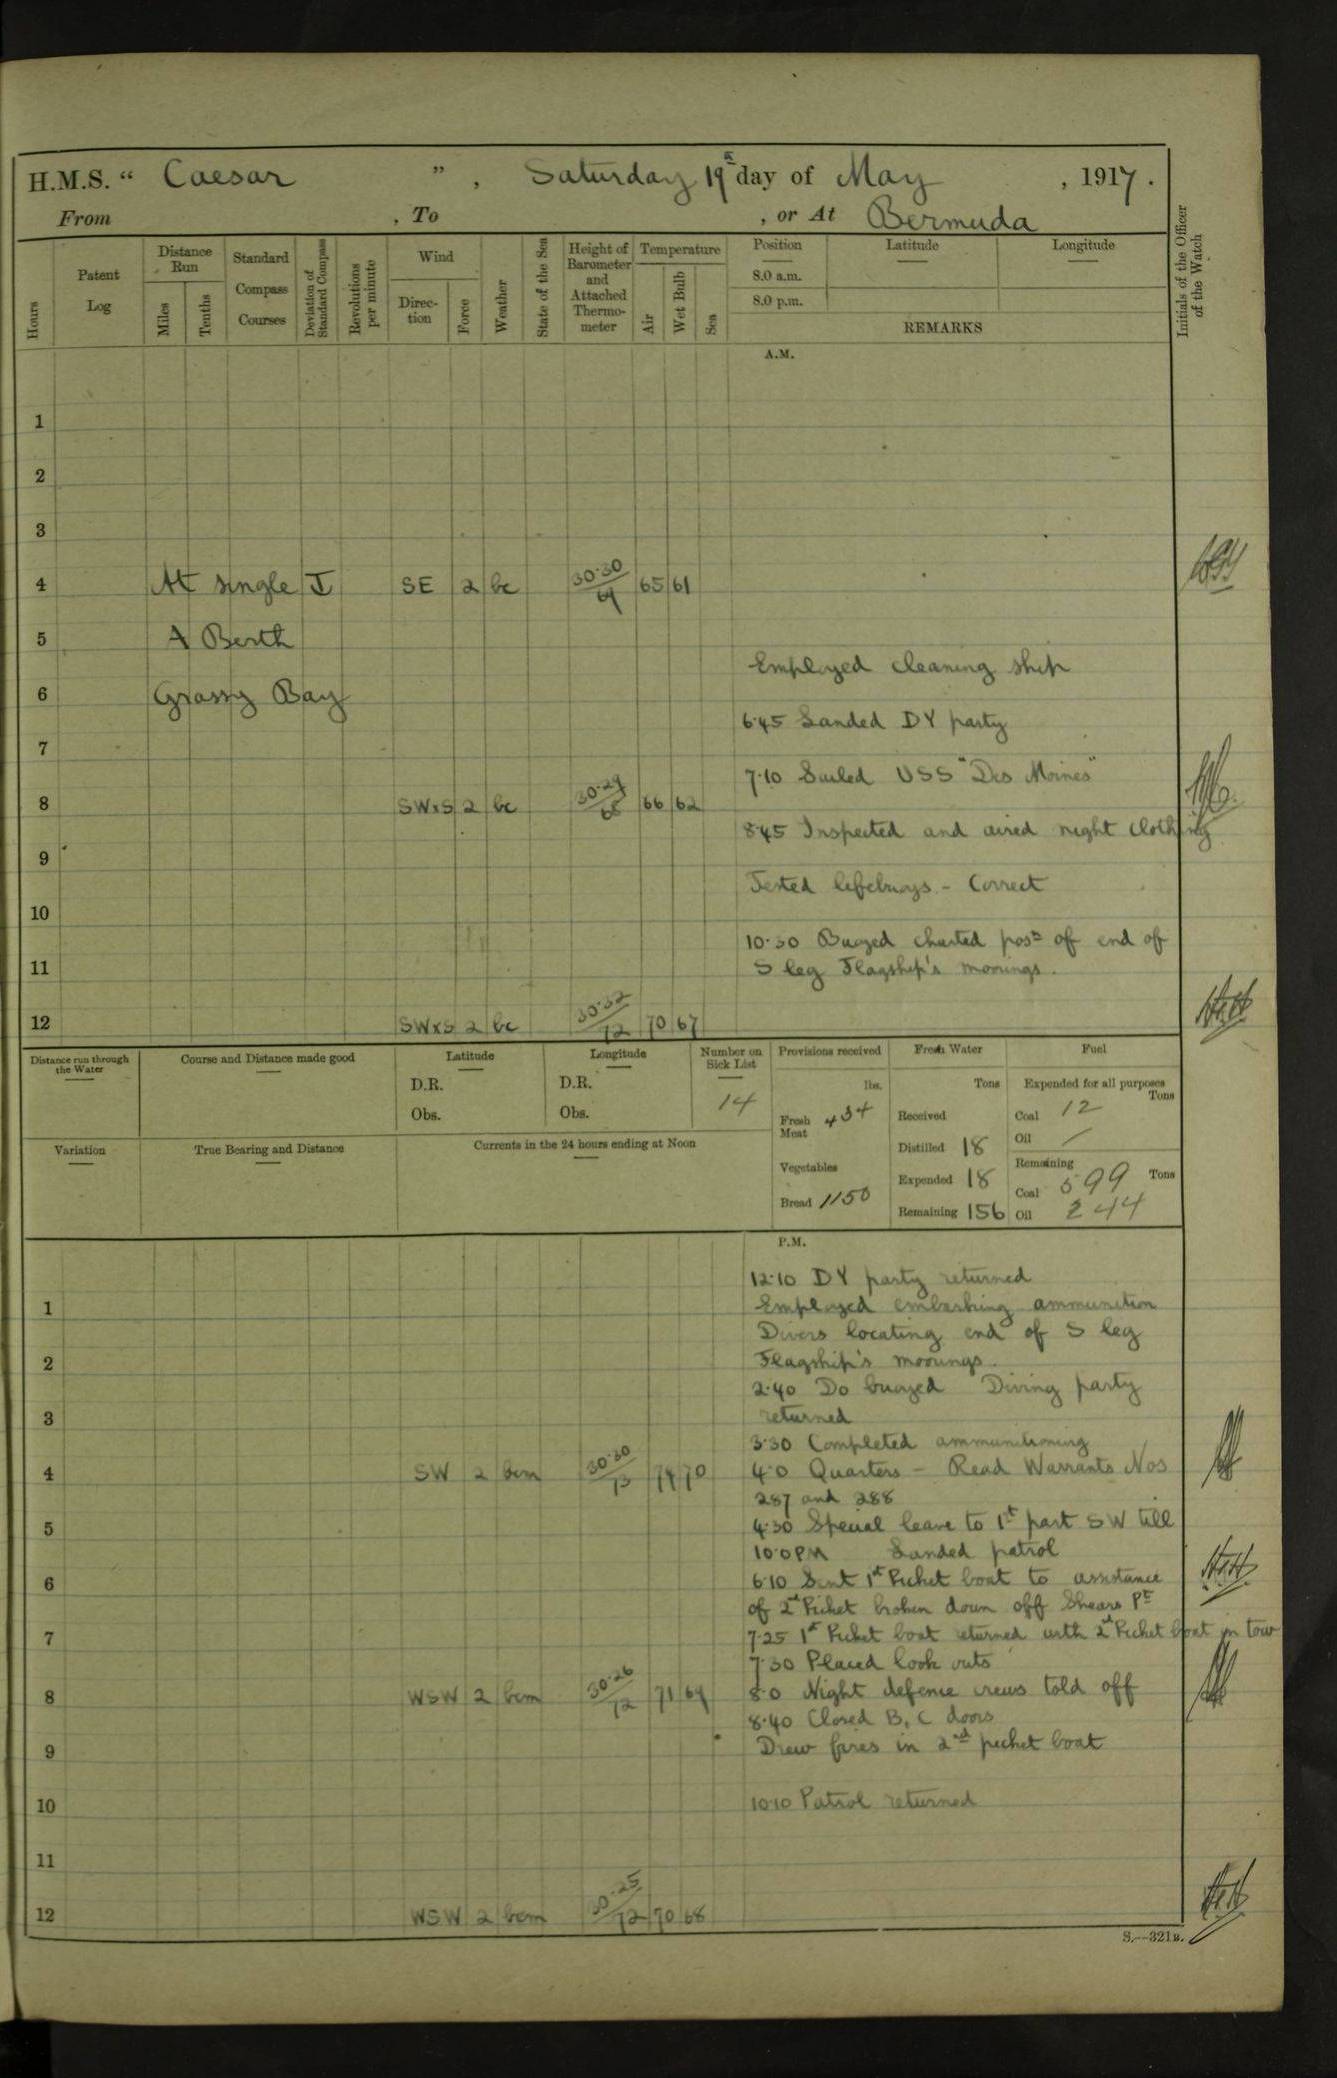 H.M.S. "Caesar", Saturday 19th day of May, 1917.
From , To , or At Bermuda
Hours
Patent Log
Distance Run
Miles
Tenths
Standard Compass Courses
Deviation of Standard Compass
Revolutions per minute
Wind
Direction
Force
Weather
State of the Sea
Height of Barometer and Attached Thermometer
Temperature
Air
Wet Bulb
Sea
Position
8.0 a.m.
8.0 p.m.
Latitude
Longitude
REMARKS
Initials of the Officer of the Watch
A.M.
1
2
3
4 At single SE 2 bc 30·30 65 61
5 A Berth
Employed cleaning ship
6 Grassy Bay
6·45 Landed DY party
7
7·10 Sailed USS "Des Moines"
8 SWxS 2 bc 30·29 68 66 62
8·45 Inspected and aired night clothing
9
Tested lifebuoys - Correct
10
10·30 Buoyed charted posn of end of
11 S leg Flagship's moorings.
12 SWxS 2 bc 30·32 72 70 67
Distance run through the Water
Course and Distance made good
Latitude
D.R.
Obs.
Longitude
D.R.
Obs.
Number on Sick List
14
Provisions received
lbs.
Fresh Meat 434
Vegetables
Bread 1150
Fresh Water
Tons
Received
Distilled 18
Expended 18
Remaining 156
Fuel
Expended for all purposes
Tons
Coal 12
Oil /
Remaining
Tons
Coal 599
Oil 244
Variation
True Bearing and Distance
Currents in the 24 hours ending at Noon
P.M.
12·10 DY party returned
1 Employed embarking ammunition
Divers locating end of S leg
2 Flagship's moorings.
2·40 Do buoyed Diving party
3 returned
3·30 Completed ammunitioning
4 SW 2 bcm 30·30 73 74 70 4·0 Quarters - Read Warrants Nos
287 and 288
5 4·30 Special leave to 1st part SW till
10·0 PM Landed patrol
6 6·10 Sent 1st Picket boat to assistance
of 2nd Picket broken down off Shears Pt
7 7·25 1st Picket boat returned with 2nd Picket boat in tow
7·30 Placed look outs
8 WSW 2 bcm 30·26 72 71 69 8·0 Night defence crews told off
8·40 Closed B, C doors
9 Drew fires in 2nd picket boat
10 10·10 Patrol returned
11
12 WSW 2 bcm 30·25 72 70 68
S.—321B.